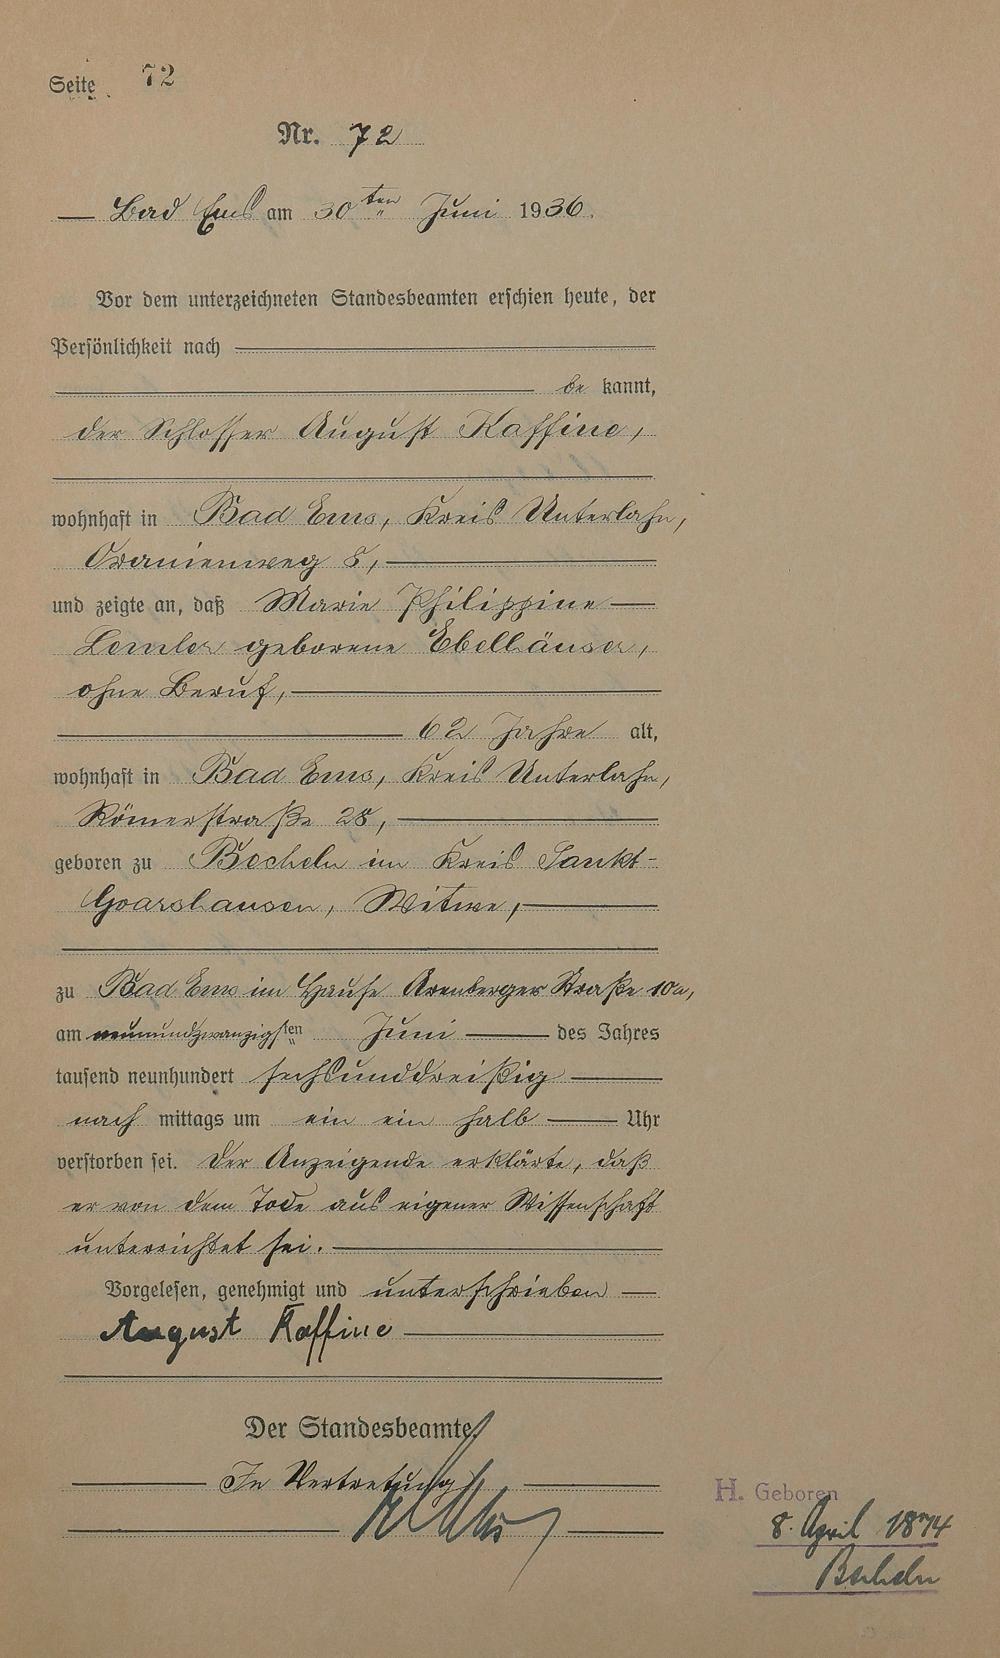 Seite 72
Nr. 72
Bad Ems am 30ten Juni 1936.
Vor dem unterzeichneten Standesbeamten erschien heute, der
Persönlichkeit nach
be kannt,
der Schlosser August Kaffine,
wohnhaft in Bad Ems, Kreis Unterlahn,
Oranienweg 8,
und zeigte an, daß Marie Philippine
Lemler geborene Ebelhäuser,
ohne Beruf,
62 Jahre alt,
wohnhaft in Bad Ems, Kreis Unterlahn,
Römerstraße 28,
geboren zu Becheln im Kreis Sankt-
Goarshausen, Witwe,
zu Bad Ems im Hause Arenberger Straße 10a,
am neunundzwanzigsten Juni des Jahres
tausend neunhundert sechsunddreißig
nach mittags um ein ein halb Uhr
verstorben sei. Der Anzeigende erklärte, daß
er von dem Tode aus eigener Wissenschaft
unterrichtet sei.
Vorgelesen, genehmigt und unterschrieben
August Kaffine
Der Standesbeamte
In Vertretung
H. Geboren
8. April 1874
Becheln